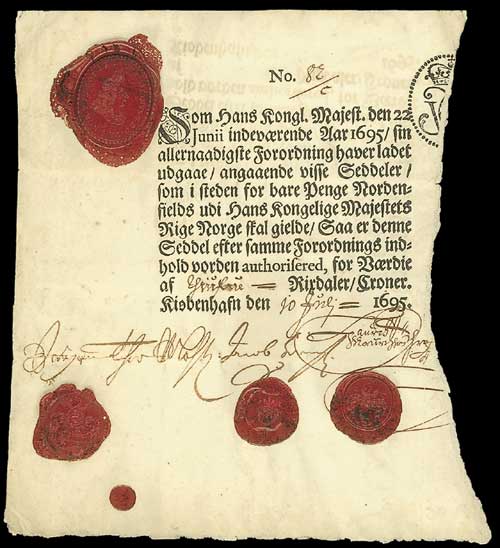 No. 82
Som Hans Kongl. Majest. den 22
Junii indeværende Aar 1695/ sin
allernaadigste Forordning haver ladet
udgaae/ angaaende visse Seddeler/
som i steden for bare Penge Norden-
fields udi Hans Kongelige Majestets
Rige Norge skal gielde/ Saa er denne
Seddel efter samme Forordnings ind-
hold vorden authorisered, for Værdie
af Rixdaler/ Croner.
Kiøbenhafn den 10 Juli 1695.